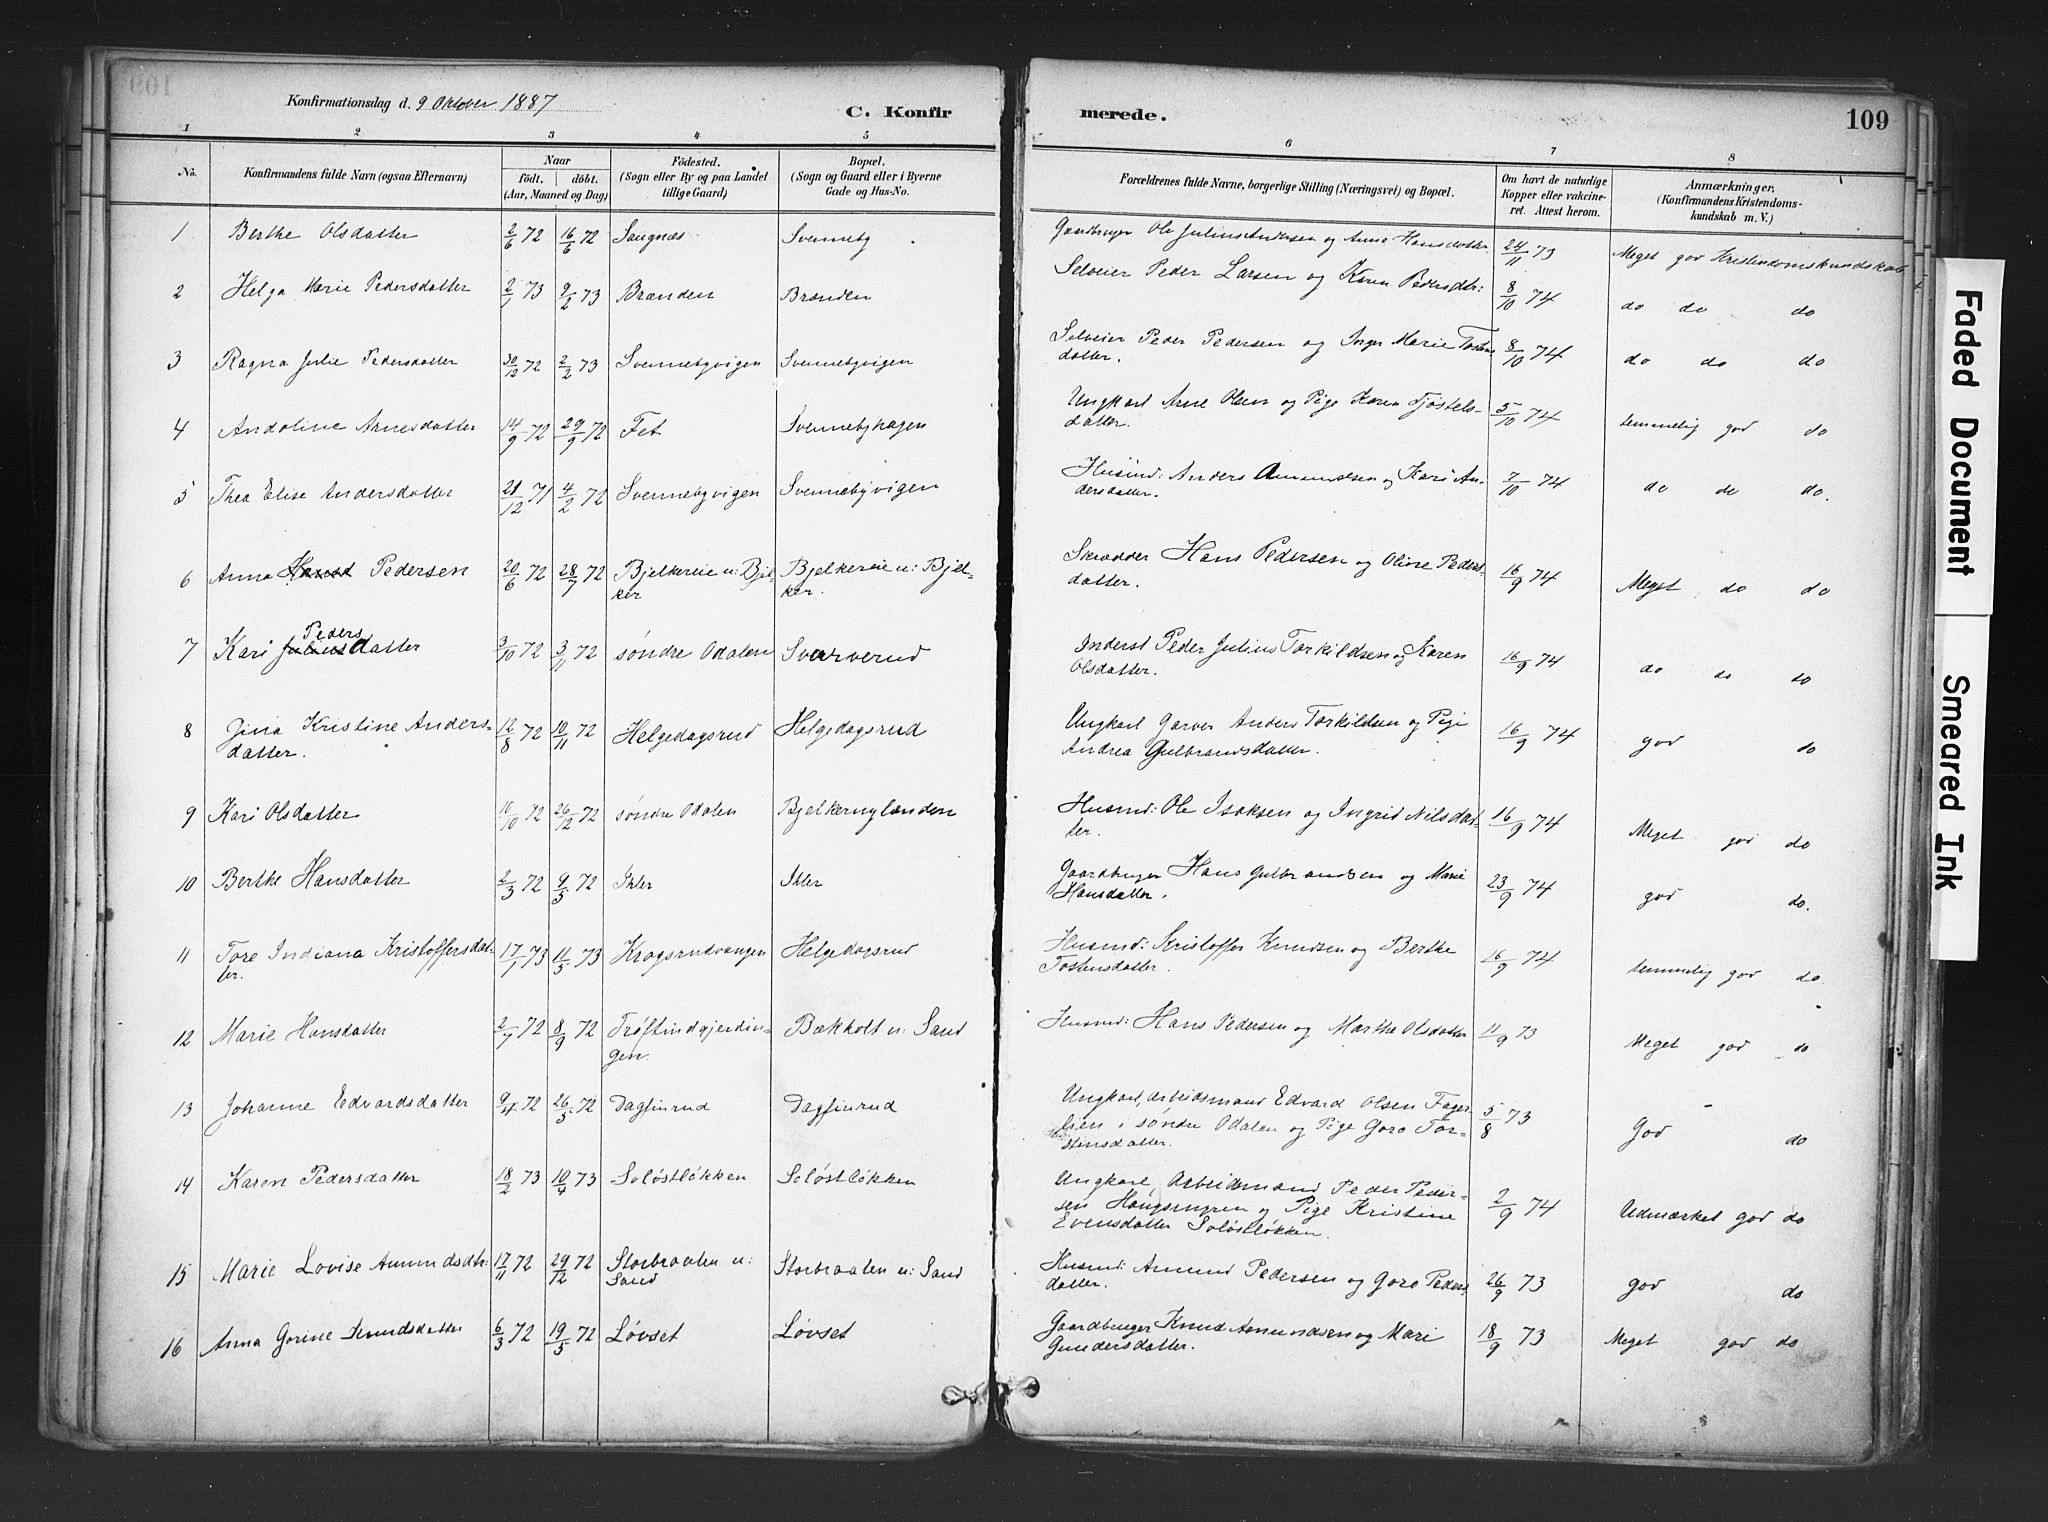 Konfirmationsdag d. 9 Oktober 1887
C. Konfirmerede.
109
1 2 3 4 5 6 7 8
No.
Konfirmandens fulde Navn (ogsaa Efternavn)
Naar
födt. döbt.
(Aar, Maaned og Dag)
Födested.
(Sogn eller By og paa Landet
tillige Gaard)
Bopæl.
(Sogn og Gaard eller i Byerne
Gade og Hus-No.
Forældrenes fulde Navne, borgerlige Stilling (Næringsvei) og Bopæl.
Om havt de naturlige
Kopper eller vakcine-
ret. Attest herom.
Anmærkninger.
(Konfirmandens Kristendoms-
kundskab m. V.)
1 Berthe Olsdatter 2/6 72 16/6 72 Saugnæs Svenneby Gaardbruger Ole Julius Andersen og Anne Hansdatter 24/11 73 Meget god Kristendomskundskab
2 Helga Marie Pedersdatter 2/1 73 9/2 73 Brænden Brænden Selveier Peder Larsen og Karen Pedersdtr: 8/10 74 do do do
3 Ragna Julie Pedersdatter 30/12 72 2/2 73 Svennebyvigen Svennebyvigen Selveier Peder Pedersen og Inger Marie Tostens
datter. 8/10 74 do do do
4 Andoline Arnesdatter 14/9 72 29/9 72 Fet Svennebyhagen Ungkarl Arne Olsen og Pige Karen Tjöstels-
datter. 5/10 74 temmelig god do
5 Thea Elise Andersdatter 28/12 71 4/2 72 Svennebyvigen Svennebyvigen Husmd: Anders Amundsen og Kari An-
dersdatter. 7/10 74 do do do.
6 Anna Hansd Pedersen 20/6 72 28/7 72 Bjelkereie u: Bjel
ker Bjelkereie u: Bjel-
ker. Skrædder Hans Pedersen og Oline Peders-
datter. 16/9 74 Meget do do
7 Kari Julius Peders datter 3/10 72 3/11 72 søndre Odalen Svarverud Inderst Peder Julius Torkildsen og Karen
Olsdatter. 16/9 74 do do do
8 Jina Kristine Anders-
datter. 12/8 72 10/11 72 Helgedagsrud Helgedagsrud Ungkarl Garver Anders Torkildsen og Pige
Andrea Gulbrandsdatter. 16/9 74 god do
9 Kari Olsdatter 10/10 72 26/12 72 søndre Odalen Bjelkernylænden Husmd: Ole Isaksen og Ingrid Nilsdat-
ter. 16/9 74 Meget god do
10 Berthe Hansdatter 2/3 72 9/5 72 Ihler Ihler Gaardbruger Hans Gulbrandsen og Marie
Hansdatter. 23/9 74 god do.
11 Tore Indiana Kristoffersdat-
ter. 17/1 73 11/5 73 Krogsrudvangen Helgedagsrud Husmd: Kristoffer Knudsen og Berthe
Tostensdatter. 16/9 74 temmelig god do
12 Marie Hansdatter 2/7 72 8/9 72 Trøftindgjerdin-
gen. Bækholt u: Sand Husmd: Hans Pedersen og Marthe Olsdatter 11/9 73 Meget god do
13 Johanne Edvardsdatter 9/4 72 26/5 72 Dagfinrud Dagfinrud Ungkarl, Arbeidsmand Edvard Olsen Fager-
lien i søndre Odalen og Pige Goro Tor-
stensdatter. 5/8 73 God do
14 Karen Pedersdatter 18/2 73 10/4 73 Soløstløkken Soløstløkken Ungkarl, Arbeidsmand Peder Peder-
sen Haugsmyren og Pige Kristine
Evensdatter Soløstløkken. 2/9 74 Udmærket god do
15 Marie Lovise Amundsdtr: 17/11 72 29/12 72 Storbraaten u:
Sand Storbraaten u: Sand Husmd: Amund Pedersen og Goro Peders-
datter. 26/9 73 god do
16 Anna Gorine Knudsdatter 6/3 72 19/5 72 Løvset Løvset Gaardbruger Knud Amundsen og Mari
Gundersdatter. 18/9 73 Meget god do
Faded Document
Smeared Ink